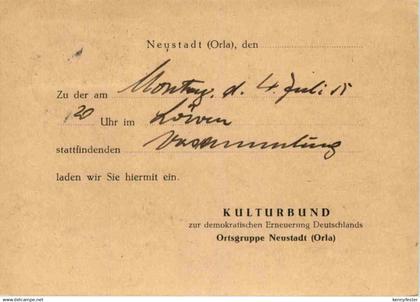 Neustadt (Orla), den
Zu der am Montag, d. 4. Juli
20 Uhr im Löwen
stattfindenden Versammlung
laden wir Sie hiermit ein.
KULTURBUND
zur demokratischen Erneuerung Deutschlands
Ortsgruppe Neustadt (Orla)
kennyfester